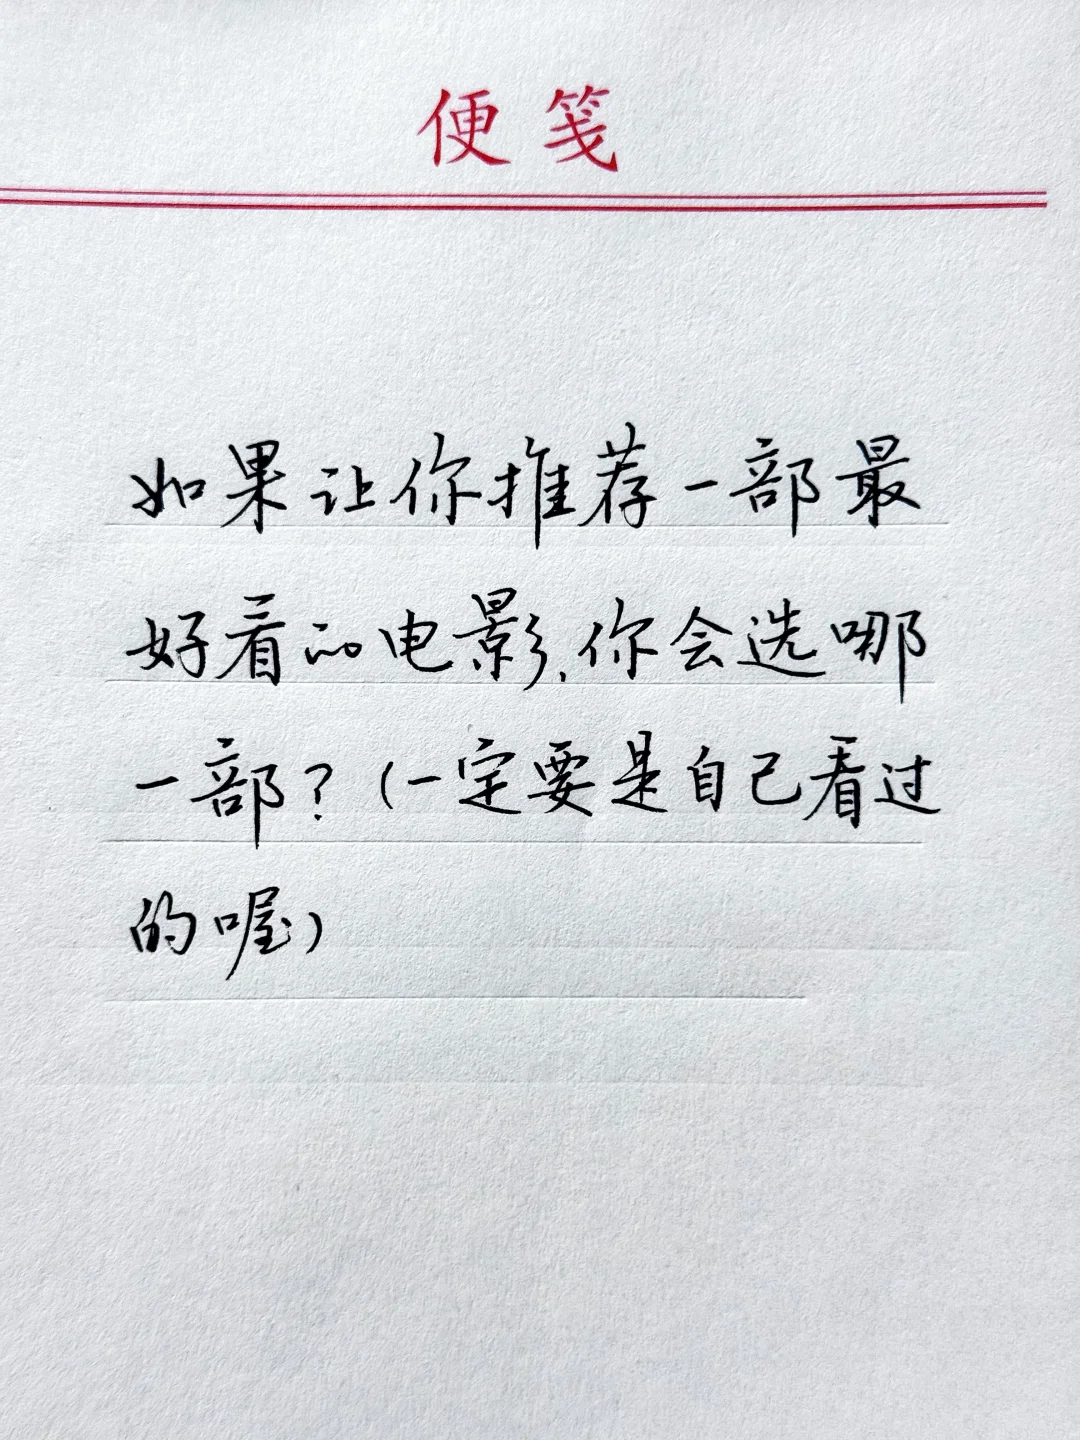 便笺
如果让你推荐一部最
好看的电影,你会选哪
一部?(一定要是自己看过
的喔)